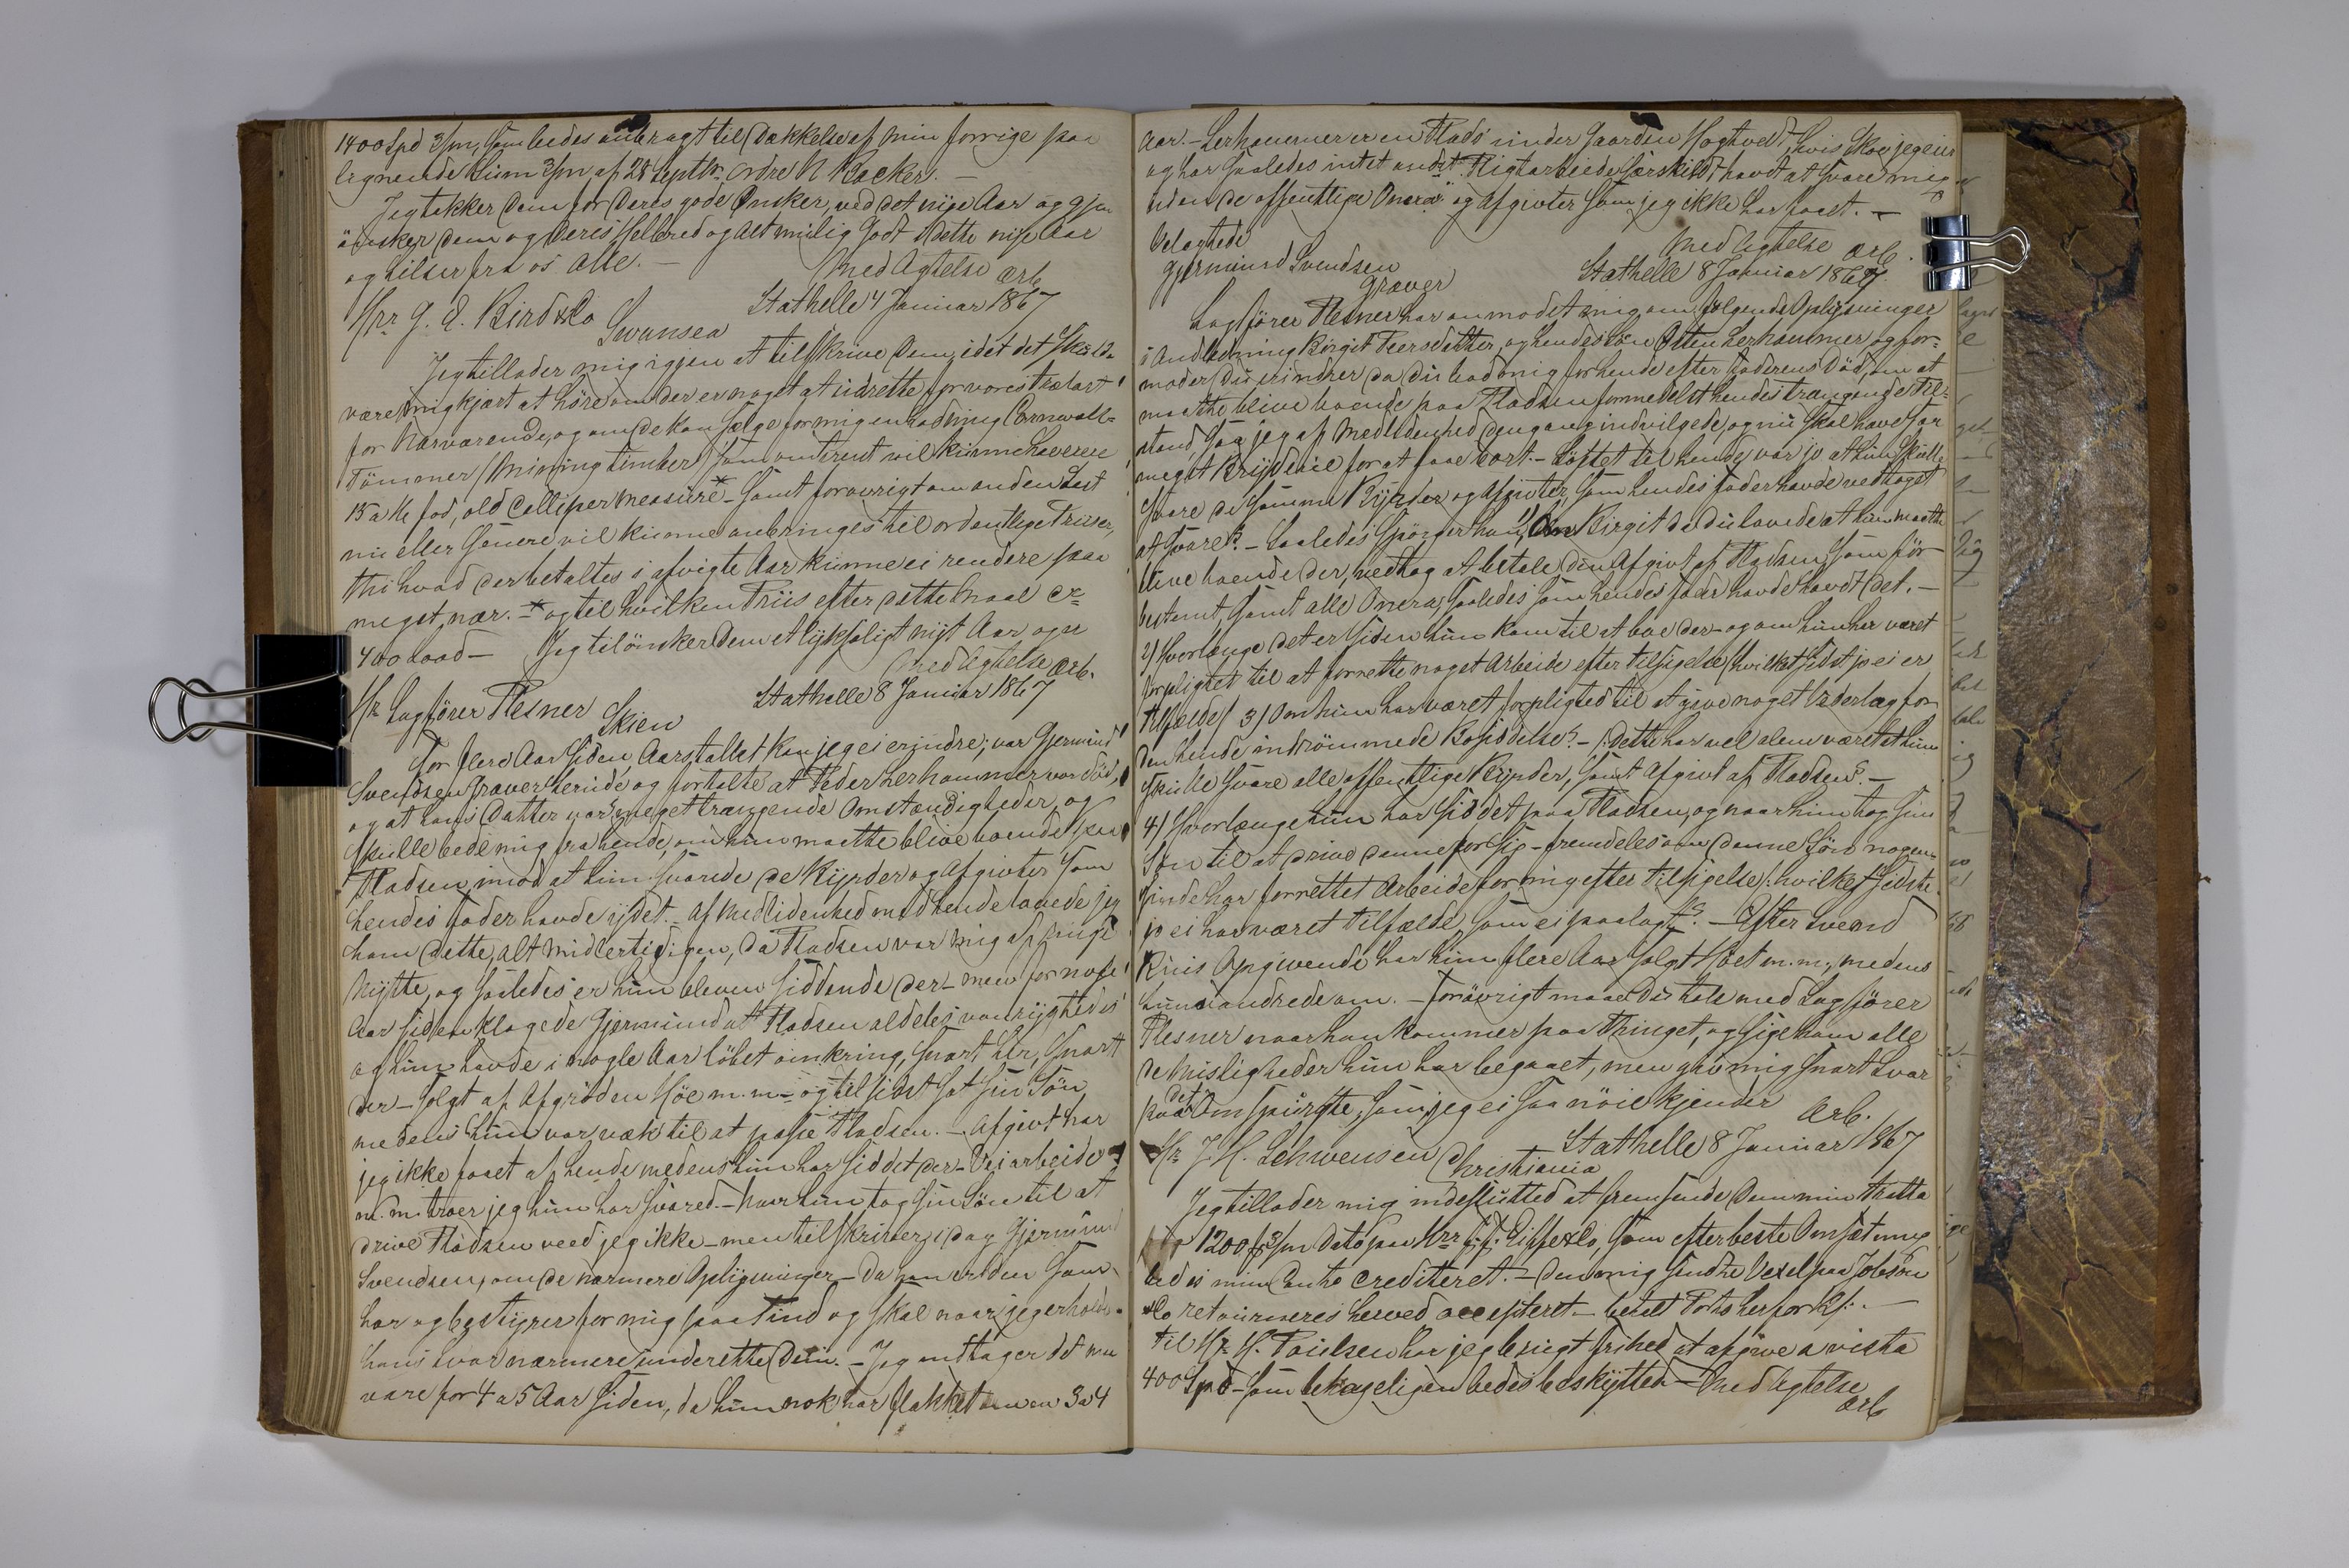 1400 Spd 3/m, som bedes anbragt til Dækkelse af min forrige paa
lignende Sum 3/m af 28 Septbr. Ordre N Backer. —
Jeg takker Dem for Deres gode Ønsker, ved det nye Aar og gjen
önsker Dem og Deres Helbred og alt mulig Godt i dette nye Aar
og hilser fra os Alle. — Med Agtelse Ærb
Hrr G. E. Bird & Co Stathelle 4 Januar 1867
Swansea
Jeg tillader mig igjen at tilskrive Dem, idet det skulde
være mig kjært at høre om der er noget at udrette for vores Trælast
for Nærværende, og om De kan sælge for mig en Ladning Cornwall-
Tömmer (Mining timber) som omtrent vil kunne havere
15 a 16 fod, old Calliper Measure* — Samt forøvrigt om anden Last
nu eller Senere vil kunne anbringes til ordentlige Priser,
thi hvad der betaltes i afvigte Aar kunne ei rendere paa
meget nær. — * og til hvilken Priis efter dette Maal
400 Load — Jeg tilönsker Dem et lyksaligt nyt Aar og er
Med Agtelse Ærb.
Hr Sagförer Plesner Stathelle 8 Januar 1867
Skien
For flere Aar siden, Aarstallet kan jeg ei erindre, var Gjermund
Svendsen Græver herinde, og fortalte at Peder Lerhammer var död,
og at hans Datter var i meget trængende Omstændigheder, og
skulle bede mig fra hende, om hun maatte blive boende paa
Pladsen, mod at hun svarede de Byrder og Afgivter som
hendes Fader havde ydet. — Af Medlidenhed med hende lavede jeg
ham dette, alt midlertidigen, da Pladsen var mig af ringe
Nytte, og saaledes er hun bleven siddende der — men for nogle
Aar siden klagede Gjermund at Pladsen aldeles vanrygtedes
og hun havde i nogle Aar löbet omkring, snart her, snart
der — solgt af Afgröden Höe m. m. — og til sidst sat sin Sön,
medens hun var væk til at passe Pladsen. — Afgivt har
jeg ikke faaet af hende medens hun har siddet der — Veiarbeide
m. m. troer jeg hun har svaret. — Naar hun tog sin Sön til at
drive Pladsen veed jeg ikke — men tilskriver i dag Gjermund
Svendsen, om de nærmere Oplysninger — da han er den som
har og bestyrer for mig paa Tind og skal naar jeg erholder
hans Svar nærmere underrette Dem. — Jeg antager det maa
være for 4 a 5 Aar siden, da hun nok har flakket om en 3 a 4
Aar. — Lerhammer er en Plads under Gaarden Hogtvedt, hvis Skov jeg eier
og har saaledes intet andet Pligtarbeide særskildt havt at svare mig
uden de offentlige Onera og Afgivter som jeg ikke har faaet. —
Velagtede Med Agtelse Ærb.
Gjermund Svendsen Stathelle 8 Januar 1867.
Græver
Sagförer Plesner har anmodet mig om fölgende Oplysninger
i Anledning Birgit Peersdatter, og hendes Sön Östen Lerhammer, og for-
moder Du erindrer da Du bad mig for hende efter Faderens Död, om at
maatte blive boende paa Pladsen formedelst hendes trængende Til-
stand, som jeg af Medlidenhed dengang indvilgede, og nu skal have saa
meget Bryderie for at faae bort. — Löftet til hende var jo at hun skulle
svare de samme Byrder og Afgivter, som hendes Fader havde vedtaget
at svare? — Saaledes spörger han, 1) Om Birgit da Du lavede at hun maatte
blive boende der, vedtog at betale den Afgivt af Pladsen, som för
bestemt, samt alle Onera, saaledes som hendes Fader havde havdt det. —
2) Hvorlænge det er siden hun kom til at boe der — og om hun har været
forpligtet til at forrette noget Arbeide efter Tilsigelse (hvilket sidst jo ei er
tilfælde) 3) Om hun har været forpligted til at give noget Vederlag for
den hende indrömmede Besiddelse? — (dette har vel alene været at hun
skulle svare alle offentlige Byrder, samt Afgivt af Pladsen?. —
4) Hvorlænge hun har siddet paa Pladsen, og naar hun tog sin
Sön til at drive denne for sig — fremdeles om denne Sön nogen-
sinde har forrettet Arbeide for mig efter Tilsigelse /: hvilket sidste
jo ei har været Tilfælde, som ei paalagt?. — Efter Svend
Ruis Angivende har hun flere Aar solgt Höet m. m., medens
hun vandrede om. — Forövrigt maae Du tale med Sagförer
Plesner naar han kommer paa Thinget, og sige ham alle
de Misligheder hun har begaaet, men giv mig snart Svar
paa det Omspurgte, som jeg ei saa nöie kjender Ærb.
Hr J. H. Schwensen Stathelle 8 Januar 1867
Christiania
Jeg tillader mig indesluttet at fremsende Dem min Tratta
1200 3/m Dato paa Hrr Eiffe & Co, som efter beste Omsætning
bedes min Conto crediteret. — Den mig sendte Vexel paa Jobson
& Co retourneres herved accepteret —
Til Hr H. Poulsen har jeg brugt frihed at afgive a vista
400 Spd — som behageligen bedes beskyttet — Med Agtelse
Ærb